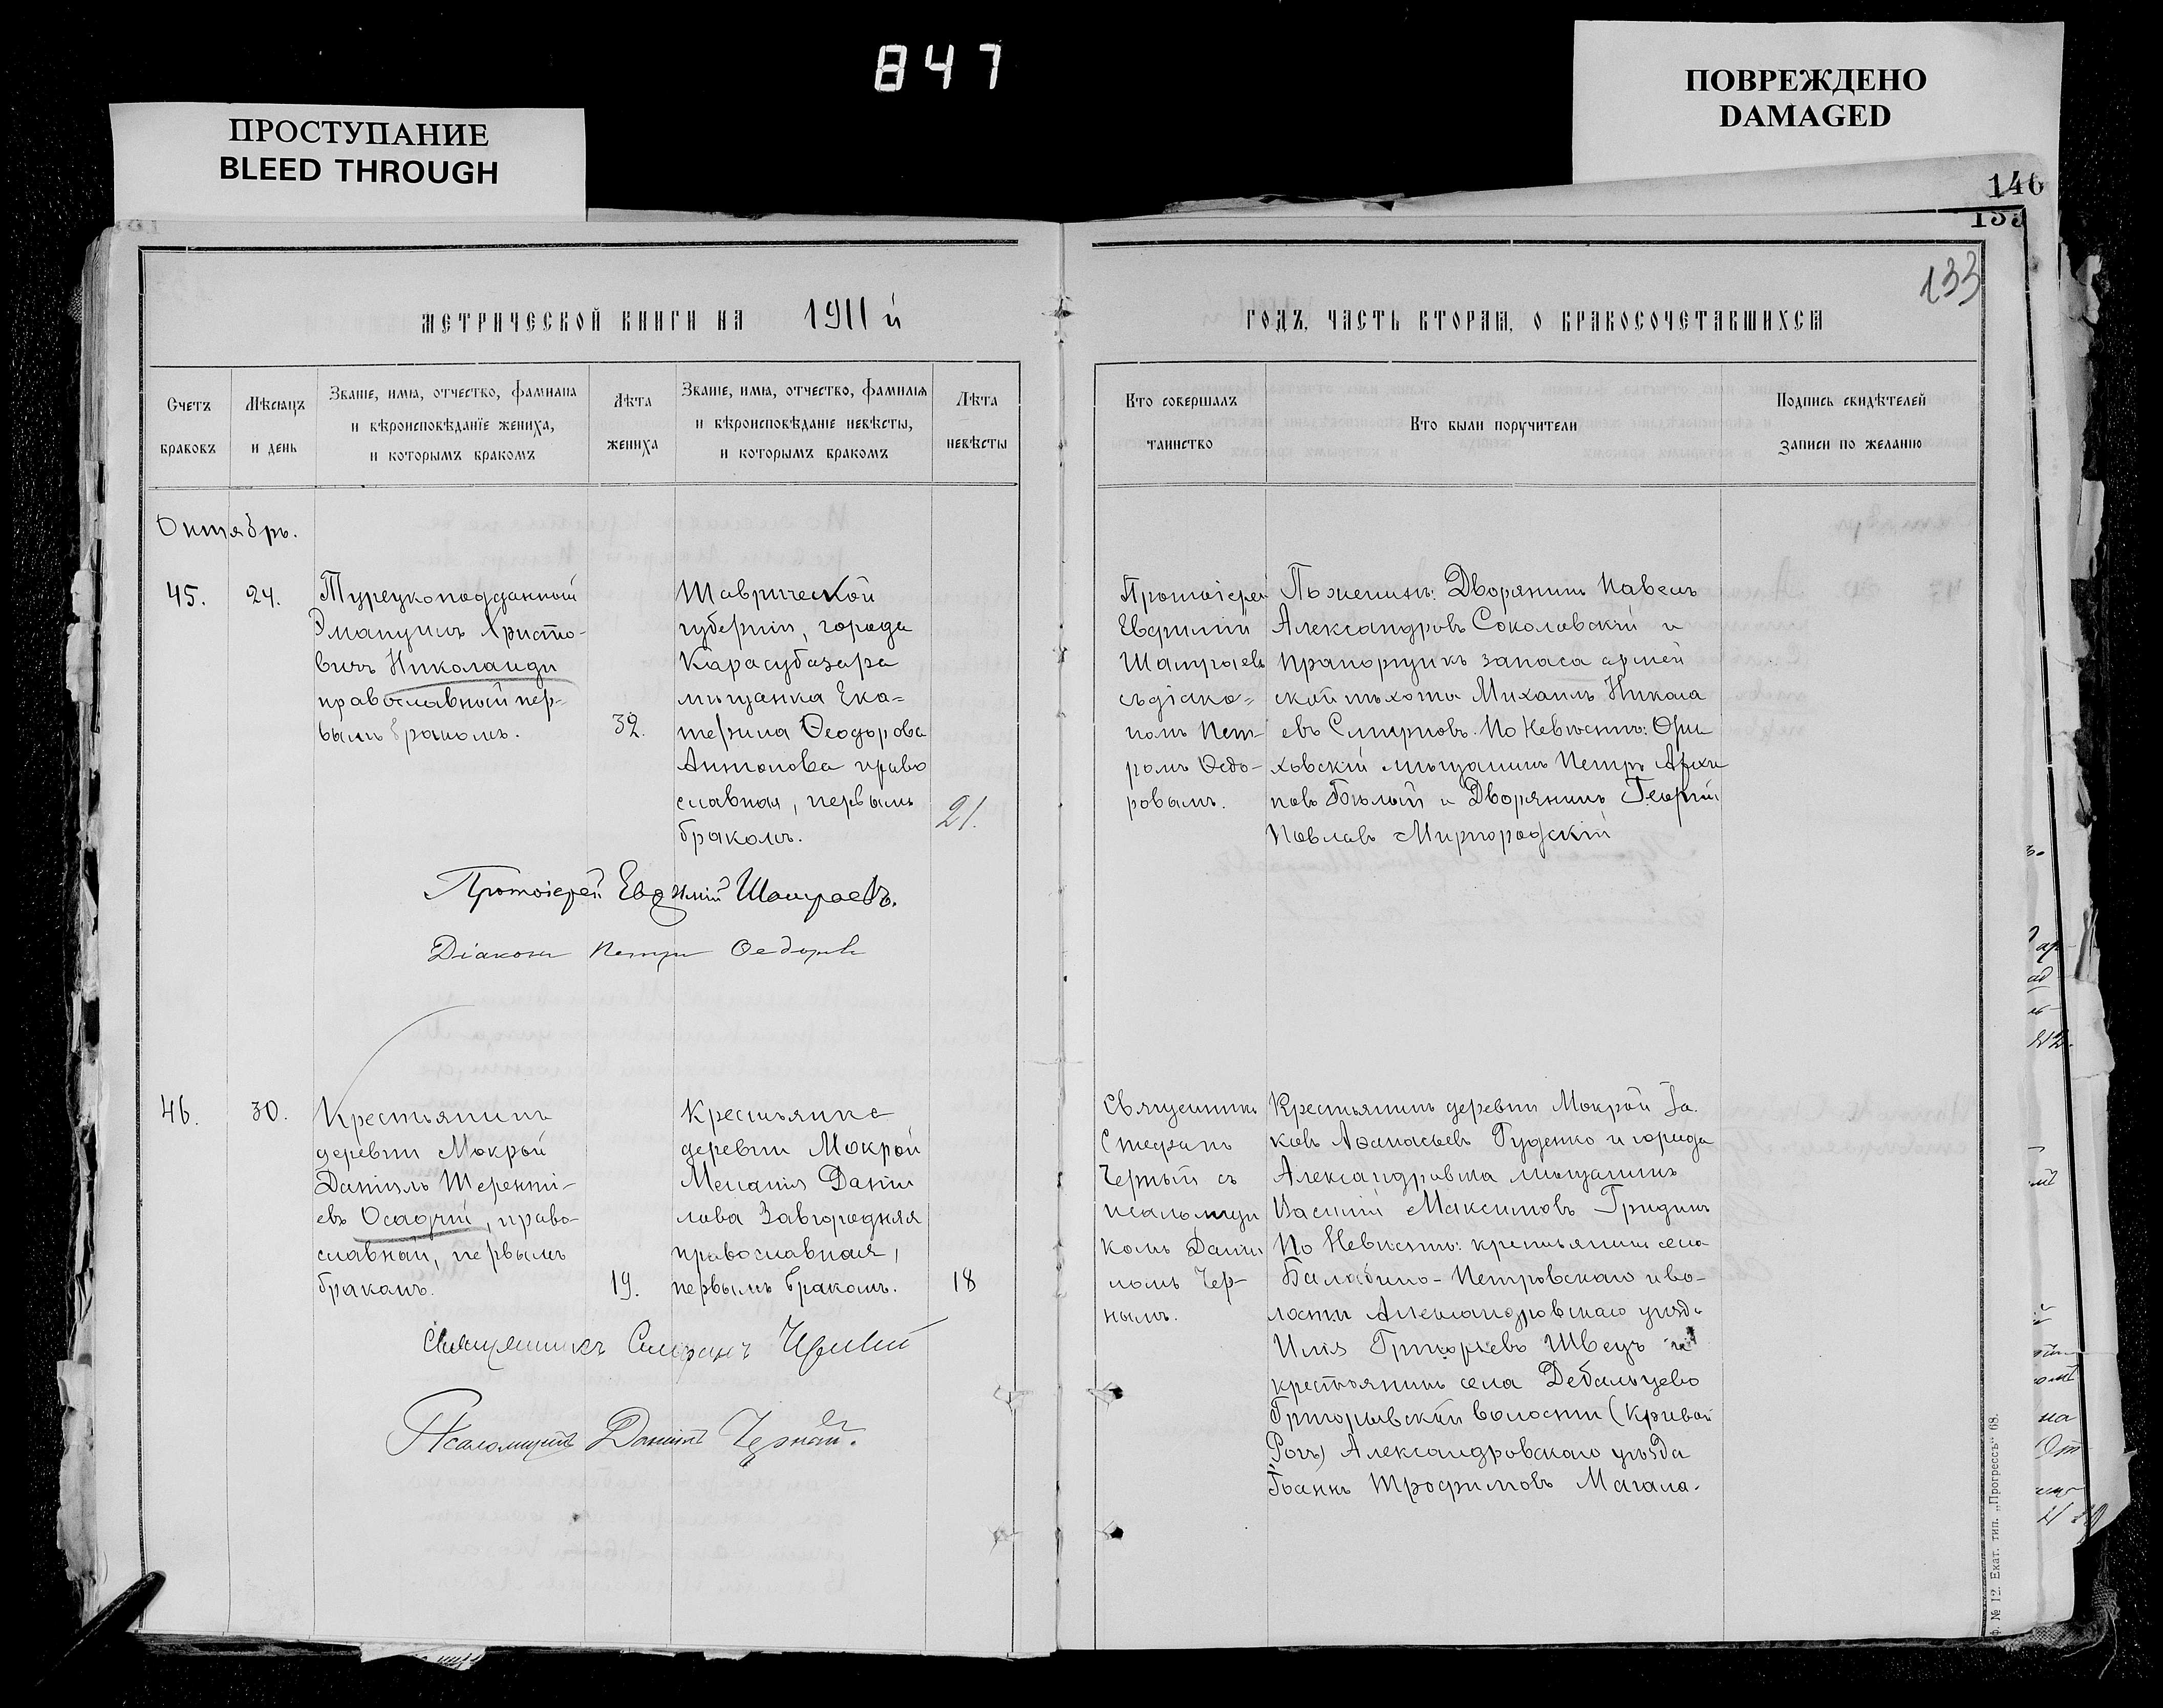 847
ПРОСТУПАНИЕ
BLEED THROUGH
ПОВРЕЖДЕНО
DAMAGED
146
133
МЕТРИЧЕСКОЙ КНИГИ НА 1911 й
ГОДЪ, ЧАСТЬ ВТОРАЯ, О БРАКОСОЧЕТАВШИХСЯ
Счетъ
браковъ
Мѣсяцъ
и день
Званіе, имя, отчество, фамилія
и вѣроисповѣданіе жениха,
и которымъ бракомъ
Лѣта
жениха
Званіе, имя, отчество, фамилія
и вѣроисповѣданіе невѣсты,
и которымъ бракомъ
Лѣта
невѣсты
Кто совершалъ
таинство
Кто были поручители
Подпись свидѣтелей
записи по желанію
Октябрь.
45.
24.
Турецкоподданный
Эмануилъ Христо-
вичъ Николаиди
православный пер-
вымъ бракомъ.
32.
Таврической
губерніи, города
Карасубазара
мѣщанка Ека-
терина Ѳеодорова
Антонова право
славная, первымъ
бракомъ.
21.
Протоіерей
Евфимій
Шатраевъ
съ діако-
номъ Пет-
ромъ Ѳедо-
ровымъ.
По женихѣ: Дворянинъ Павелъ
Александровъ Соколовскій и
прапорщикъ запаса армей
ской пѣхоты Михаилъ Никола
евъ Смирновъ. По Невѣстѣ: Орѣ
ховскій мѣщанинъ Петръ Архи
повъ Бѣлый и Дворянинъ Георгій
Павловъ Миргородскій
Протоіерей Евѳимій Шатраевъ.
Діаконъ Петръ Ѳедоровъ
46.
30.
Крестьянинъ
деревни Мокрой
Даніилъ Терентi-
евъ Осадчій, право-
славный, первымъ
бракомъ.
19.
Крестьянка
деревни Мокрой
Меланія Даніи
лова Завгородняя
православная,
первымъ бракомъ.
18
Священникъ
Стефанъ
Черный съ
псаломщи
комъ Даніи
ломъ Чер-
нымъ.
Крестьянинъ деревни Мокрой Іа
ковъ Аѳанасьевъ Гуденко и города
Александровска мѣщанинъ
Василій Максимовъ Гридинъ
По Невѣстѣ: крестьянинъ села
Балабино-Петровскаго и во-
лости Александровскаго уѣзда
Илія Григорьевъ Швецъ и
крестьянинъ села Дебальцево
Григорьевской волости (Кривой
Рогъ) Александровскаго уѣзда
Іоаннъ Трофимовъ Магала.
Священникъ Стефанъ Черный
Псаломщикъ Даніилъ Черный.
ф. № 12. Екат. тип. „Прогрессъ" 68.